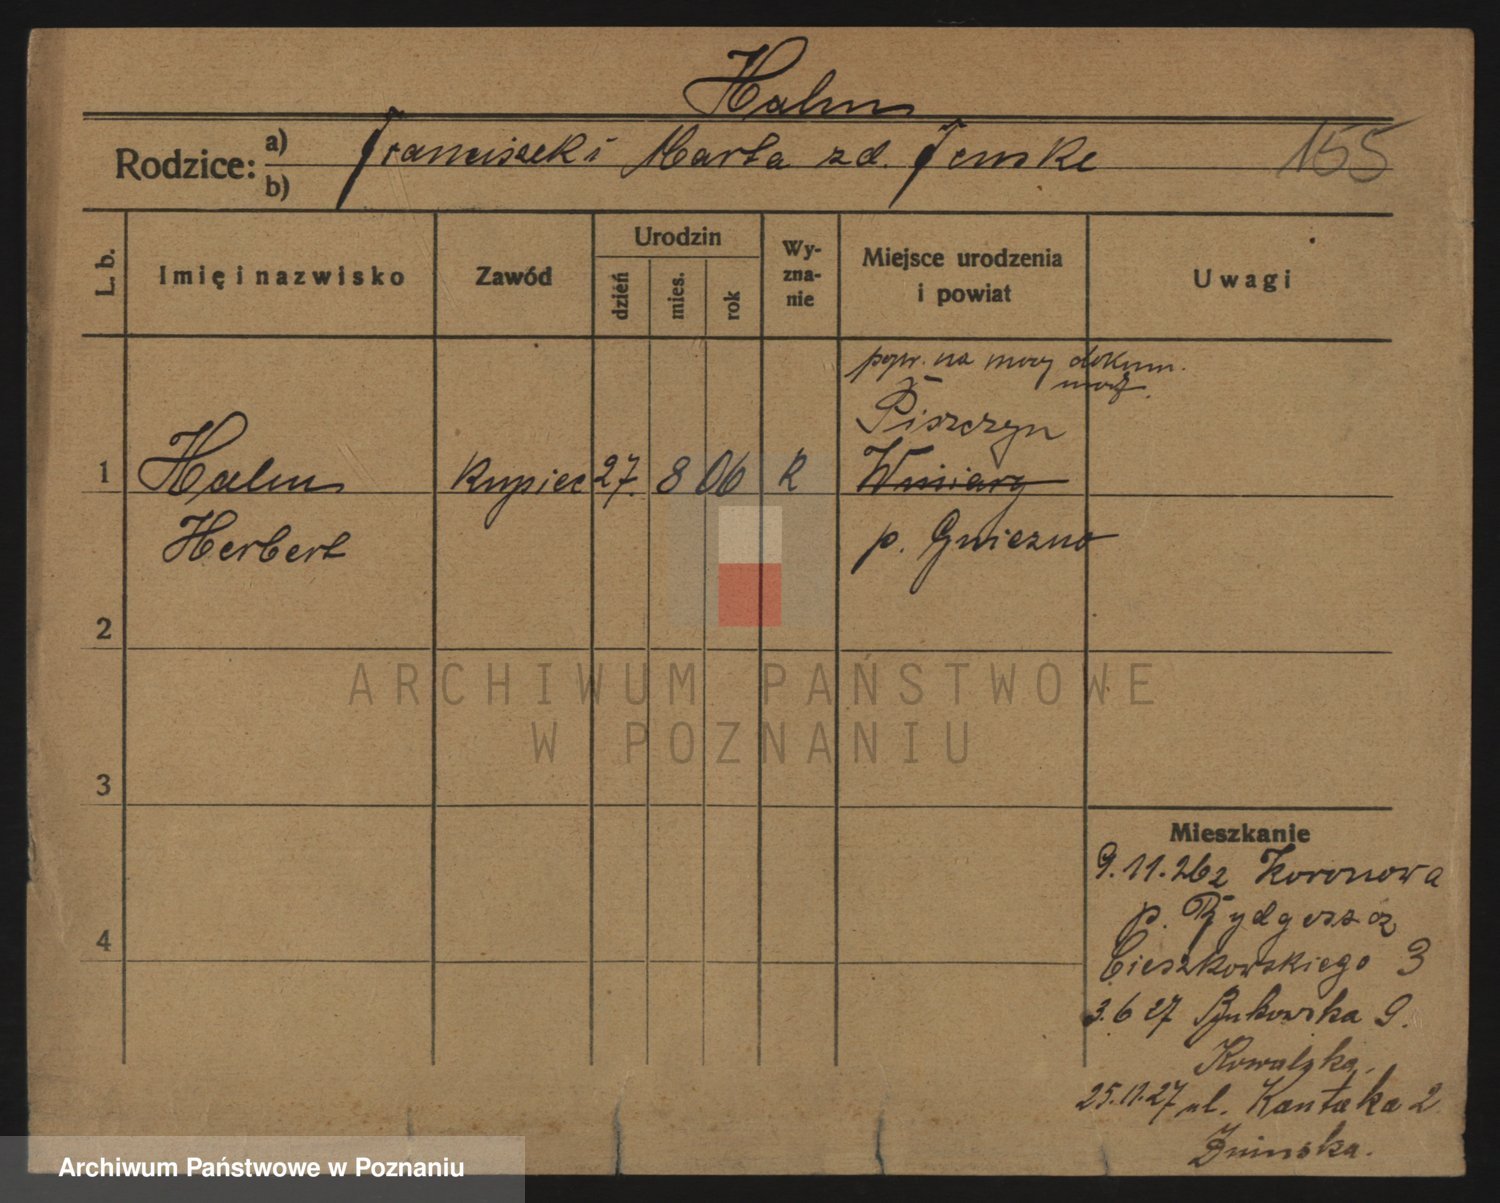 Halm
Rodzice: a) b) Franciszek i Marta zd. Jenske
155
L. b.
Imię i nazwisko
Zawód
Urodzin
dzień
mies.
rok
Wy-
zna-
nie
Miejsce urodzenia
i powiat
Uwagi
popr. na mocy dokum.
Piszczyn
1 Halm Kupiec 27. 8 06 R Winiary
Herbert p. Gniezno
2
3
4
Mieszkanie
9.11.26 z Koronowa
p. Bydgoszcz
Cieszkowskiego 3
3.6 27 Bukowska 9.
Kowalska
25.11.27 ul. Kantaka 2
Żnińska.
ARCHIWUM PAŃSTWOWE
W POZNANIU
Archiwum Państwowe w Poznaniu